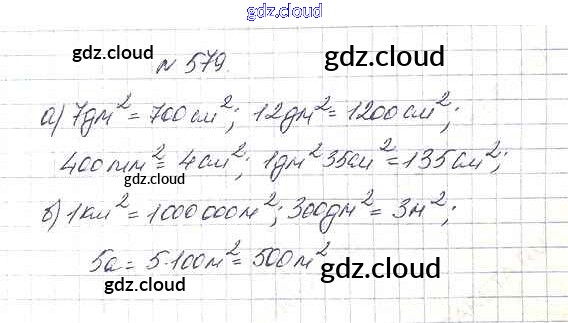 gdz.cloud
gdz.cloud
gdz.cloud
№ 579.
а) 7дм² = 700 см²; 12дм² = 1200 см²;
400мм² = 4см²; 1дм² 35см² = 135см²;
gdz.cloud
gdz.cloud
б) 1км² = 1000 000м²; 300дм² = 3м²;
5а = 5·100м² = 500м²
gdz.cloud
gdz.cloud